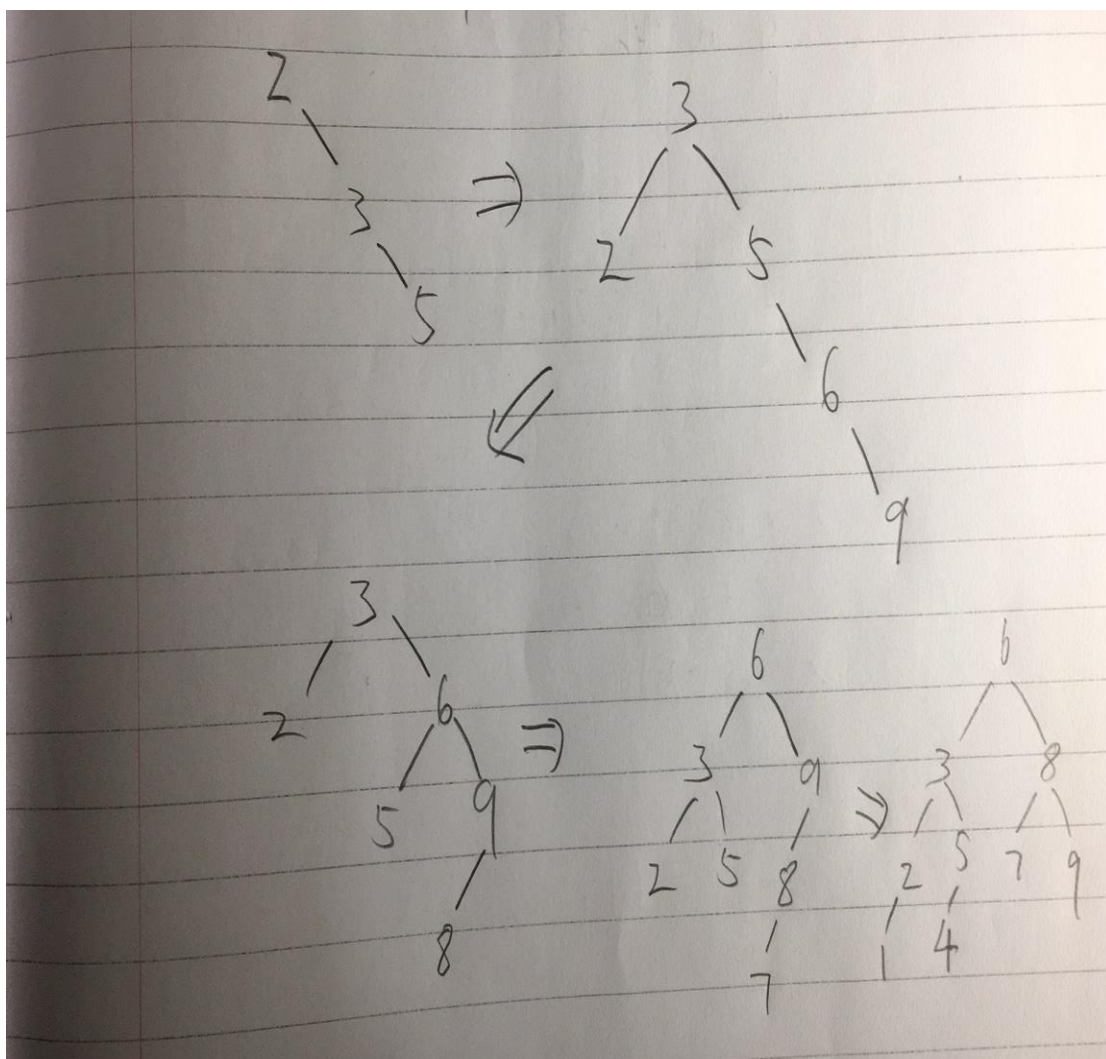 2
3
5
⇒
3
2 5
6
9
⇙
3
2 6
5 9
8
⇒
6
3 9
2 5 8
7
⇒
6
3 8
2 5 7 9
1 4